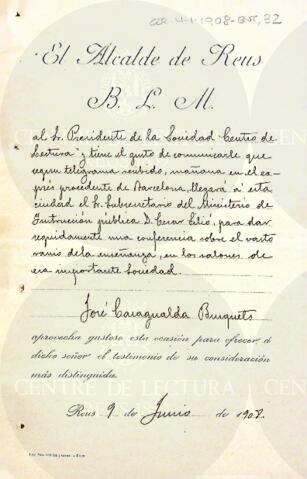 El Alcalde de Reus
B. L. M.
al Sr. Presidente de la Sociedad "Centro de
Lectura" y tiene el gusto de comunicarle que
segun telegrama recibido, mañana en el ex-
prés procedente de Barcelona llegará á esta
ciudad el Sr. Subsecretario del Ministerio de
Instrucción pública D. Cesar Silió, para dar
seguidamente una conferencia sobre el vasto
ramo de la enseñanza, en los salones de
esa importante Sociedad.
José Casagualda Busquets
aprovecha gustoso esta ocasión para ofrecer á
dicho señor el testimonio de su consideración
más distinguida.
CENTRE DE LECTURA
Reus 9 de Junio de 1908.